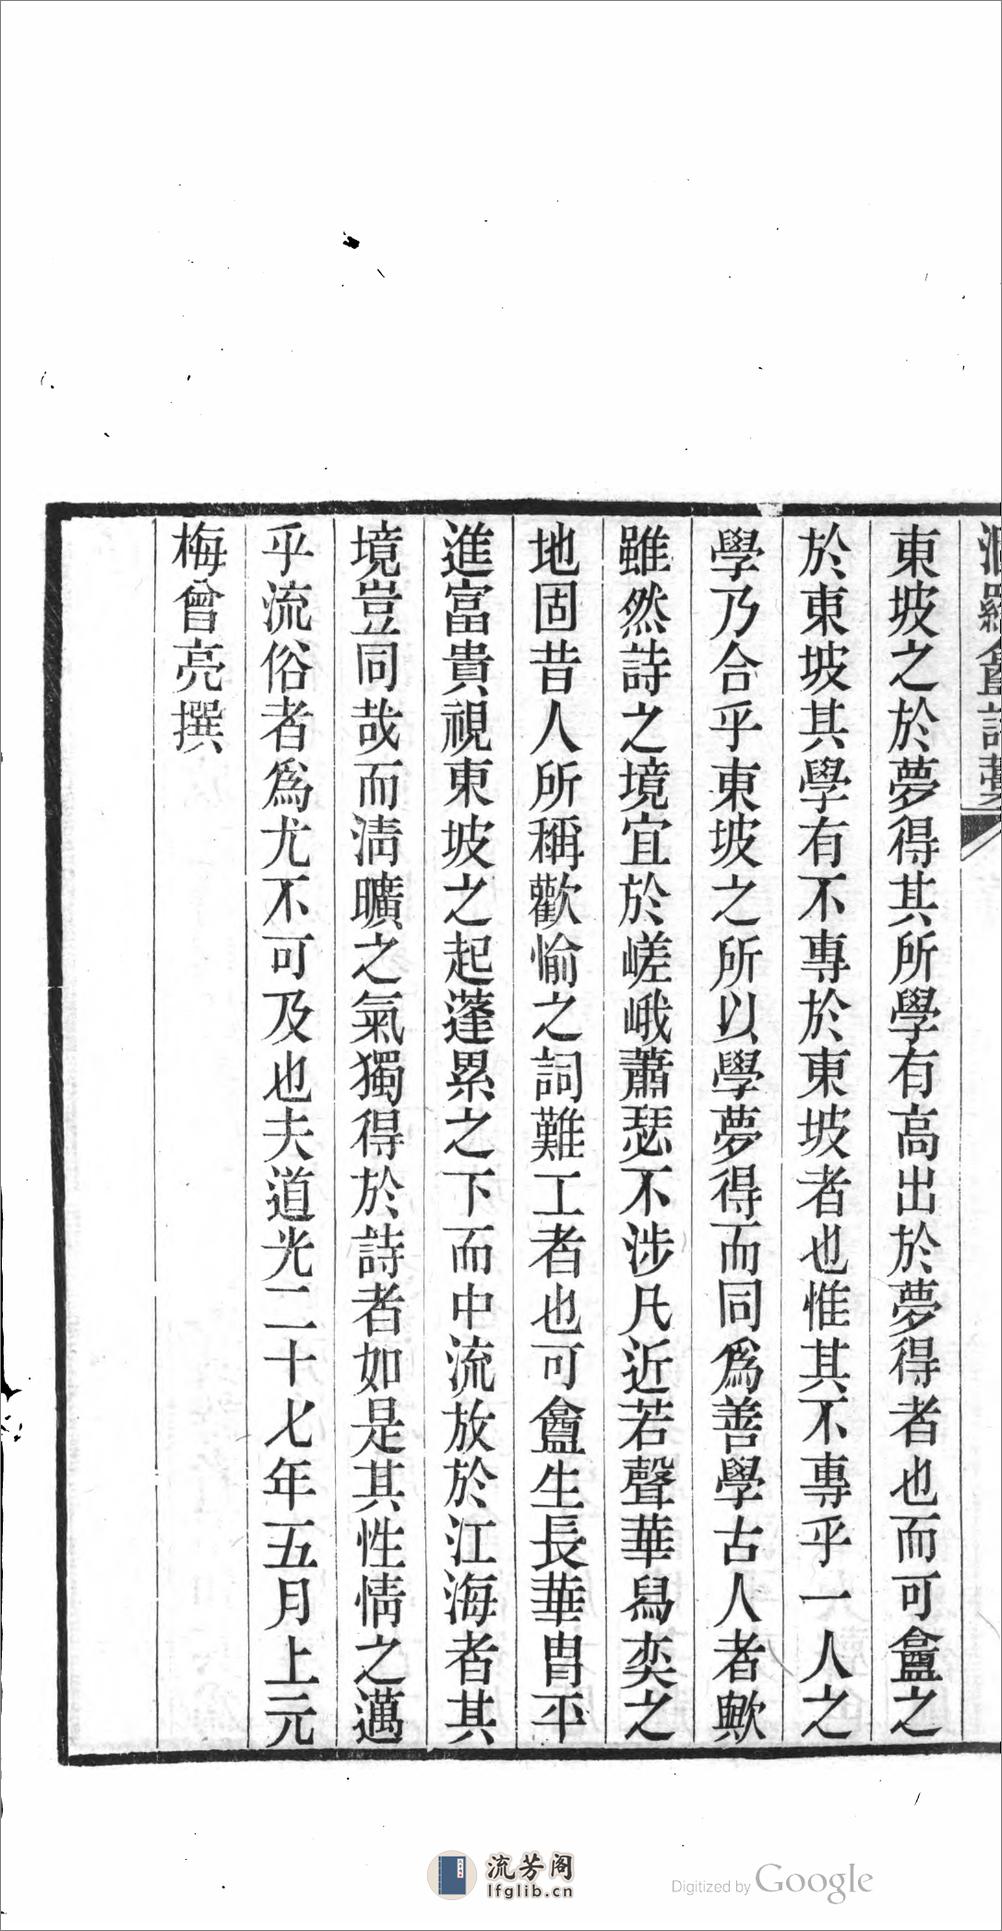 東坡之於夢得其所學有高出於夢得者也而可盦之
於東坡其學有不專於東坡者也惟其不專乎一人之
學乃合乎東坡之所以學夢得而同爲善學古人者歟
雖然詩之境宜於嵯峨蕭瑟不涉凡近若聲華舄奕之
地固昔人所稱歡愉之詞難工者也可盦生長華冑平
進富貴視東坡之起蓬累之下而中流放於江海者其
境豈同哉而清曠之氣獨得於詩者如是其性情之邁
乎流俗者爲尤不可及也夫道光二十七年五月上元
梅曾亮撰
流芳阁
lfglib.cn
Digitized by Google